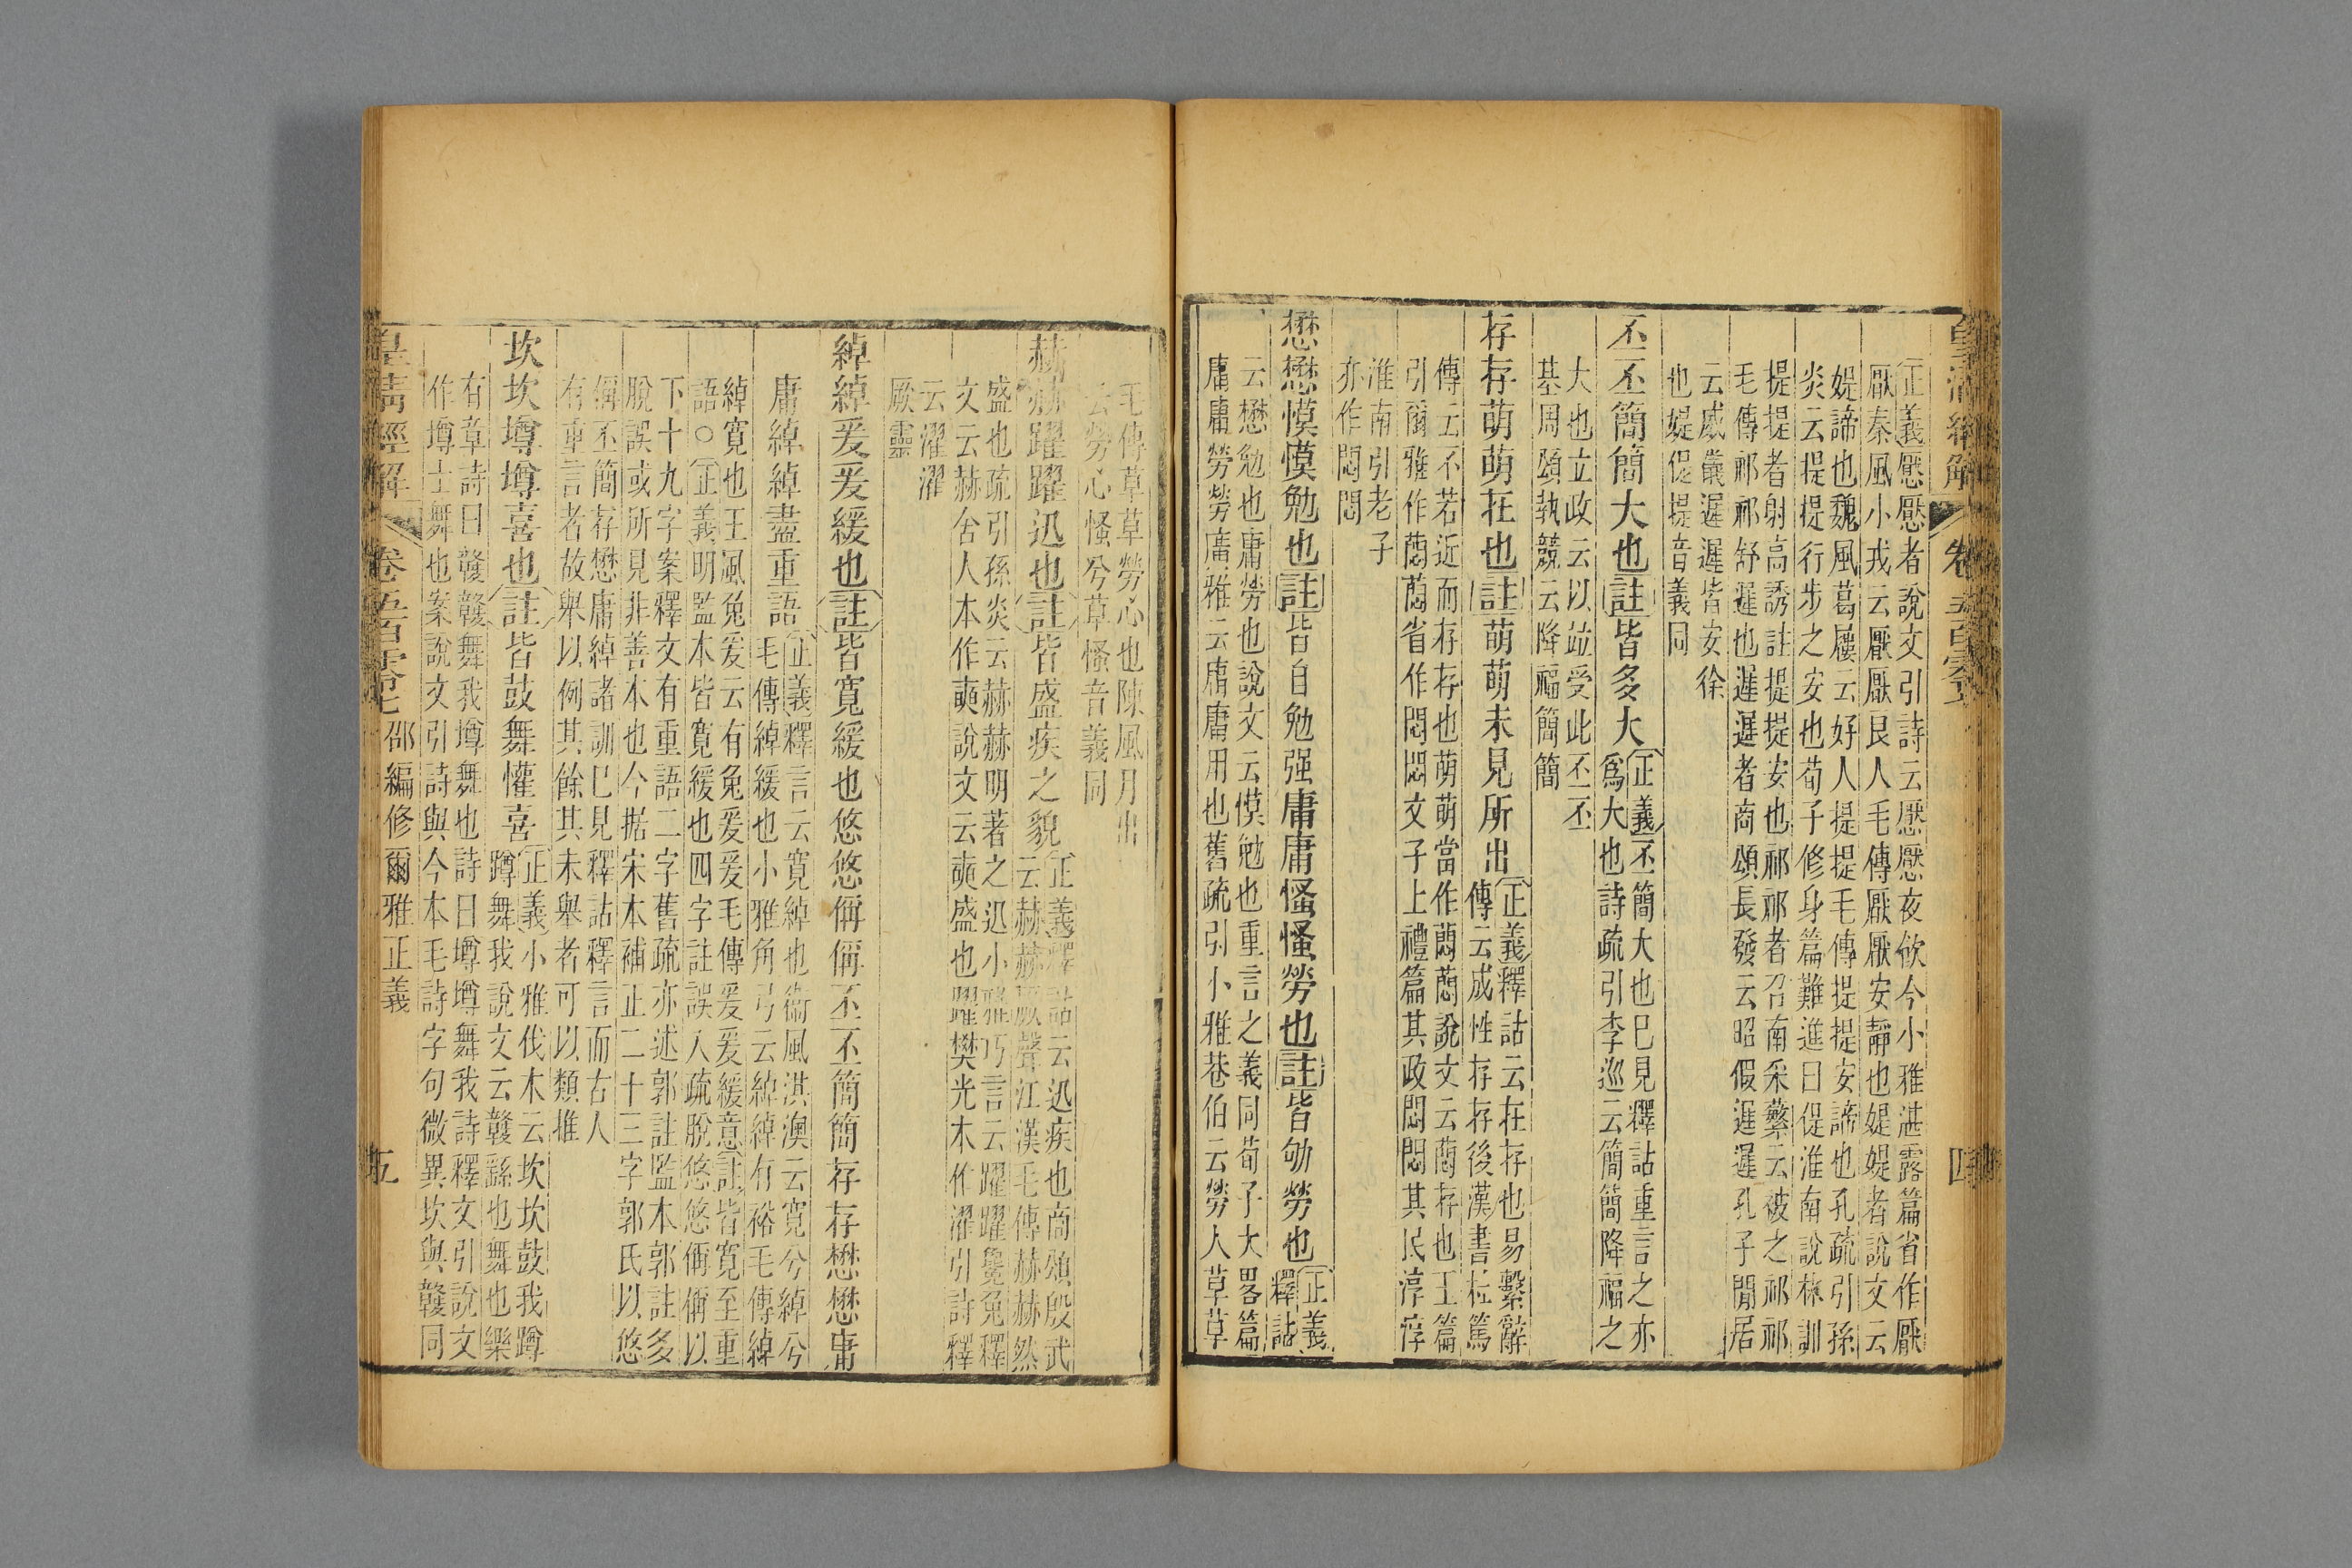 皇清經解
卷五百零七
四
正義懕懕者說文引詩云懕懕夜飲今小雅湛露篇省作厭
厭秦風小戎云厭厭良人毛傳厭厭安靜也媞媞者說文云
媞諦也魏風葛屨云好人提提毛傳提提安諦也孔疏引孫
炎云提提行步之安也荀子修身篇難進曰偍淮南說林訓
提提者射高誘註提提安也祁祁者召南采蘩云被之祁祁
毛傳祁祁舒遲也遲遲者商頌長發云昭假遲遲孔子閒居
云威儀遲遲皆安徐
也媞偍提音義同
丕丕簡簡大也註皆多大正義丕簡大也已見釋詁重言之亦
為大也詩疏引李巡云簡簡降福之
大也立政云以竝受此丕丕
基周頌執競云降福簡簡
存存萌萌在也註萌萌未見所出正義釋詁云在存也易繫辭
傳云成性存存後漢書杜篤
傳云不若近而存存也萌萌當作蕄蕄說文云蕄存也王篇
引爾雅作蕄蕄省作悶悶文子上禮篇其政悶悶其民淳淳
淮南引老子
亦作悶悶
懋懋慔慔勉也註皆自勉强庸庸慅慅勞也註皆劬勞也正義
釋詁
云懋勉也庸勞也說文云慔勉也重言之義同荀子大畧篇
庸庸勞勞廣雅云庸庸用也舊疏引小雅巷伯云勞人草草
毛傳草草勞心也陳風月出
云勞心慅兮草慅音義同
赫赫躍躍迅也註皆盛疾之貌正義釋詁云迅疾也商頌殷武
云赫赫厥聲江漢毛傳赫赫然
盛也疏引孫炎云赫赫明著之迅小雅巧言云躍躍毚兔釋
文云赫舍人本作奭說文云奭盛也躍樊光本作濯引詩釋
云濯濯
厥靈
綽綽爰爰緩也註皆寬緩也悠悠偁偁丕丕簡簡存存懋懋庸
庸綽綽盡重語正義釋言云寬綽也衞風淇澳云寬兮綽兮
毛傳綽緩也小雅角弓云綽綽有裕毛傳綽
綽寬也王風兔爰云有兔爰爰毛傳爰爰緩意註皆寬至重
語○正義明監本皆寬緩也四字註誤入疏脫悠悠偁偁以
下十九字案釋文有重語二字舊疏亦述郭註監本郭註多
脫誤或所見非善本也今據宋本補正二十三字郭氏以悠
偁丕簡存懋庸綽諸訓已見釋詁釋言而古人
有重言者故舉以例其餘其未舉者可以類推
坎坎墫墫喜也註皆鼓舞懽喜正義小雅伐木云坎坎鼓我蹲
蹲舞我說文云竷繇也舞也樂
有章詩曰竷竷舞我墫舞也詩曰墫墫舞我詩釋文引說文
作墫士舞也案說文引詩與今本毛詩字句微異坎與竷同
皇清經解
卷五百零七
邵編修爾雅正義
五